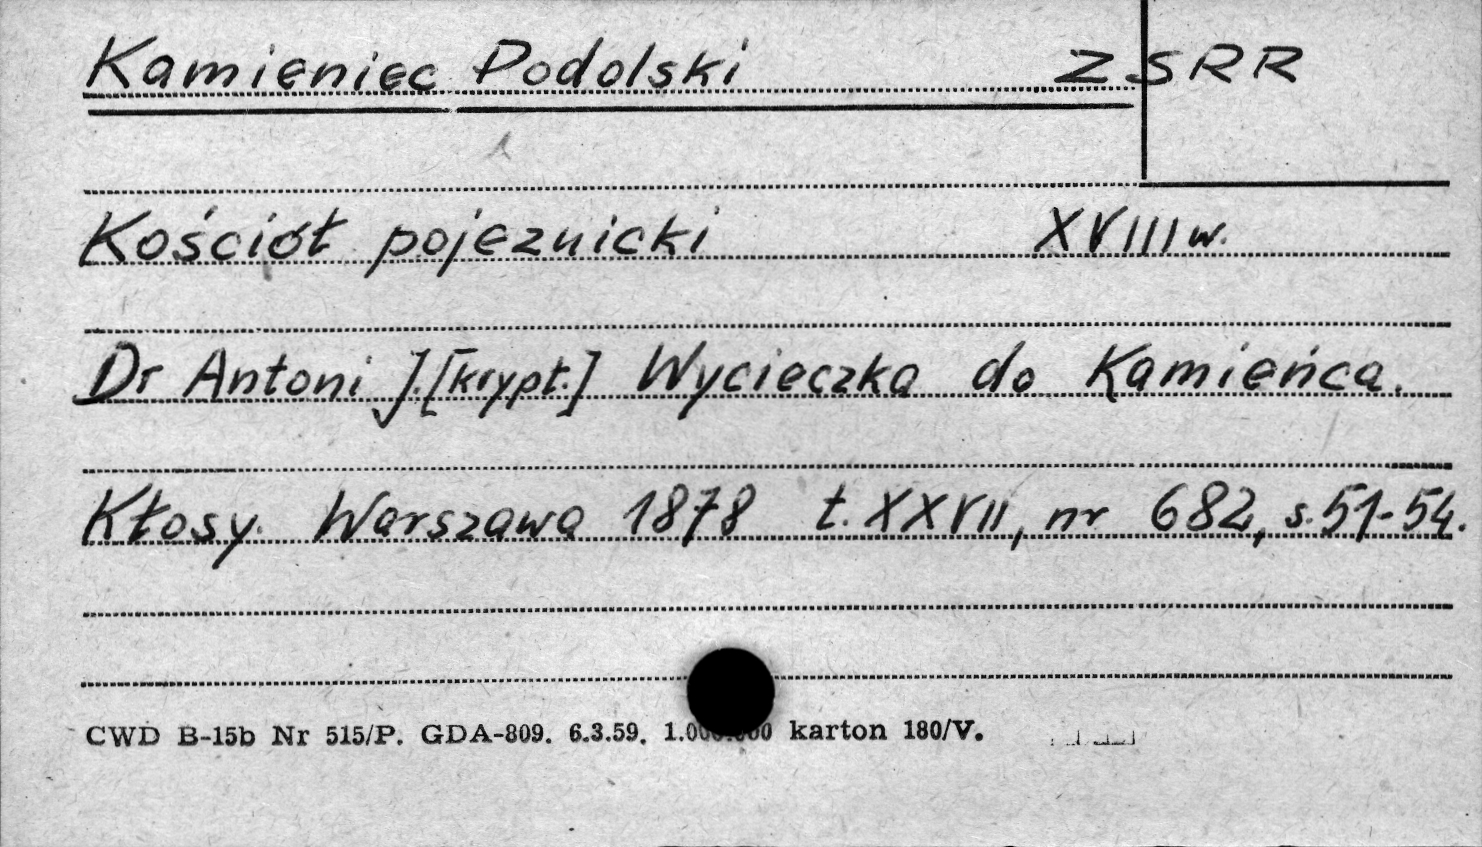 Kamieniec Podolski ZSRR
Kościół pojeznicki XVIII w.
Dr Antoni J. [krypt.] Wycieczka do Kamieńca.
Kłosy. Warszawa 1878 t. XXVII, nr 682, s. 51-54.
CWD B-15b Nr 515/P. GDA-809. 6.3.59. karton 180/V.